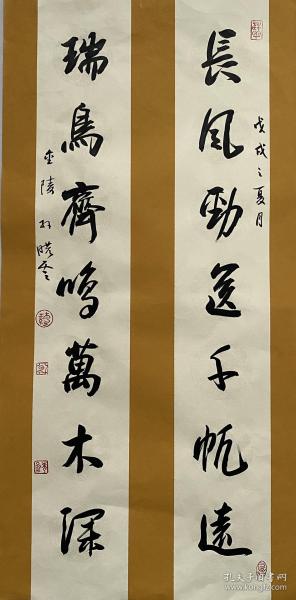 長風勁送千帆遠
戊戌之夏月
瑞鳥齊鳴萬木深
金陵
孔夫子旧书网